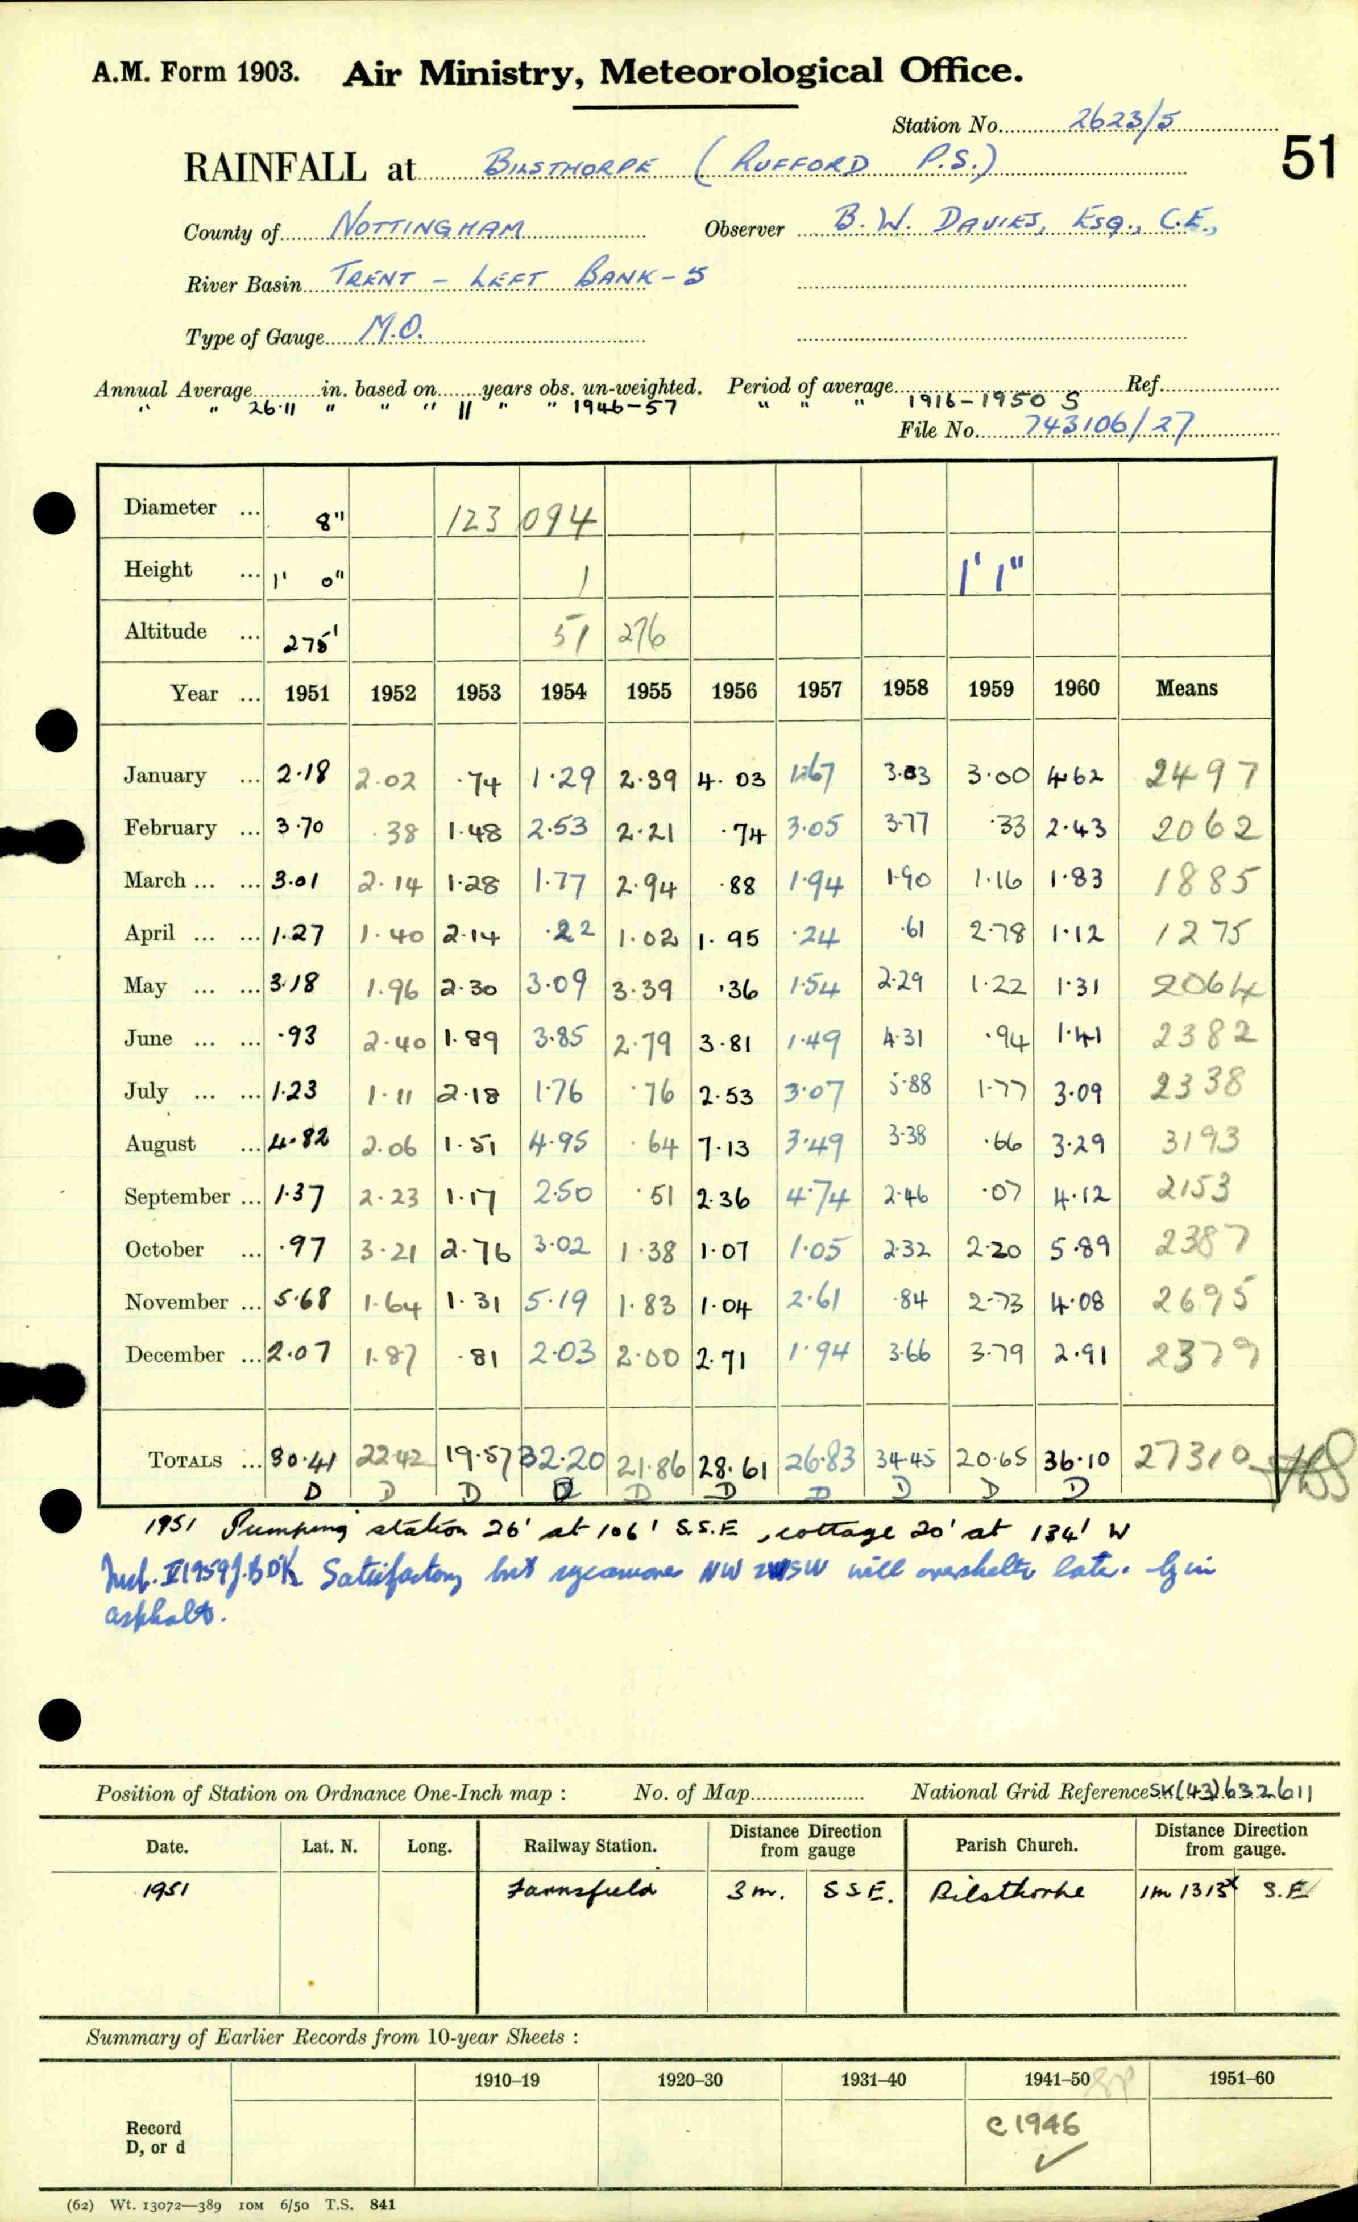 A.M. Form 1903. Air Ministry, Meteorological Office.
Station No. 2623/5
51
RAINFALL at BILSTHORPE (RUFFORD P.S.)
County of NOTTINGHAM Observer B. W. DAVIES, ESQ., C.E.,
River Basin TRENT - LEFT BANK - 5
Type of Gauge M.O.
Annual Average in. based on years obs. un-weighted. Period of average Ref.
" " 26·11 " " " 11 " " 1946-57 " " " 1916-1950 S
File No. 743106/27
Diameter ... 8" 123 094
Height ... 1' 0" 1 1' 1"
Altitude ... 275' 51 276
Year ... 1951 1952 1953 1954 1955 1956 1957 1958 1959 1960 Means
January ... 2·18 2·02 ·74 1·29 2·39 4·03 1·67 3·03 3·00 4·62 2497
February ... 3·70 ·38 1·48 2·53 2·21 ·74 3·05 3·77 ·33 2·43 2062
March ... ... 3·01 2·14 1·28 1·77 2·94 ·88 1·94 1·90 1·16 1·83 1885
April ... ... 1·27 1·40 2·14 ·22 1·02 1·95 ·24 ·61 2·78 1·12 1275
May ... ... 3·18 1·96 2·30 3·09 3·39 ·36 1·54 2·29 1·22 1·31 2064
June ... ... ·93 2·40 1·89 3·85 2·79 3·81 1·49 4·31 ·94 1·41 2382
July ... ... 1·23 1·11 2·18 1·76 ·76 2·53 3·07 5·88 1·77 3·09 2338
August ... 4·82 2·06 1·51 4·95 ·64 7·13 3·49 3·38 ·66 3·29 3193
September ... 1·37 2·23 1·17 2·50 ·51 2·36 4·74 2·46 ·07 4·12 2153
October ... ·97 3·21 2·76 3·02 1·38 1·07 1·05 2·32 2·20 5·89 2387
November ... 5·68 1·64 1·31 5·19 1·83 1·04 2·61 ·84 2·73 4·08 2695
December ... 2·07 1·87 ·81 2·03 2·00 2·71 1·94 3·66 3·79 2·91 2379
TOTALS ... 30·41 22·42 19·57 32·20 21·86 28·61 26·83 34·45 20·65 36·10 27310
D D D D D D D D D D
1951 Pumping station 26' at 106' S.S.E, cottage 20' at 134' W
Insp. V 1959 J.BDK Satisfactory but sycamores NW SW will overshelter later. G in
asphalt.
Position of Station on Ordnance One-Inch map : No. of Map National Grid Reference SK(43)632611
Date. Lat. N. Long. Railway Station. Distance from gauge Direction Parish Church. Distance from gauge. Direction
1951 Farnsfield 3 m. SSE. Bilsthorpe 1m 1315x S.E
Summary of Earlier Records from 10-year Sheets :
1910–19 1920–30 1931–40 1941–50 1951–60
Record D, or d c 1946 ✓
(62) Wt. 13072—389 10M 6/50 T.S. 841